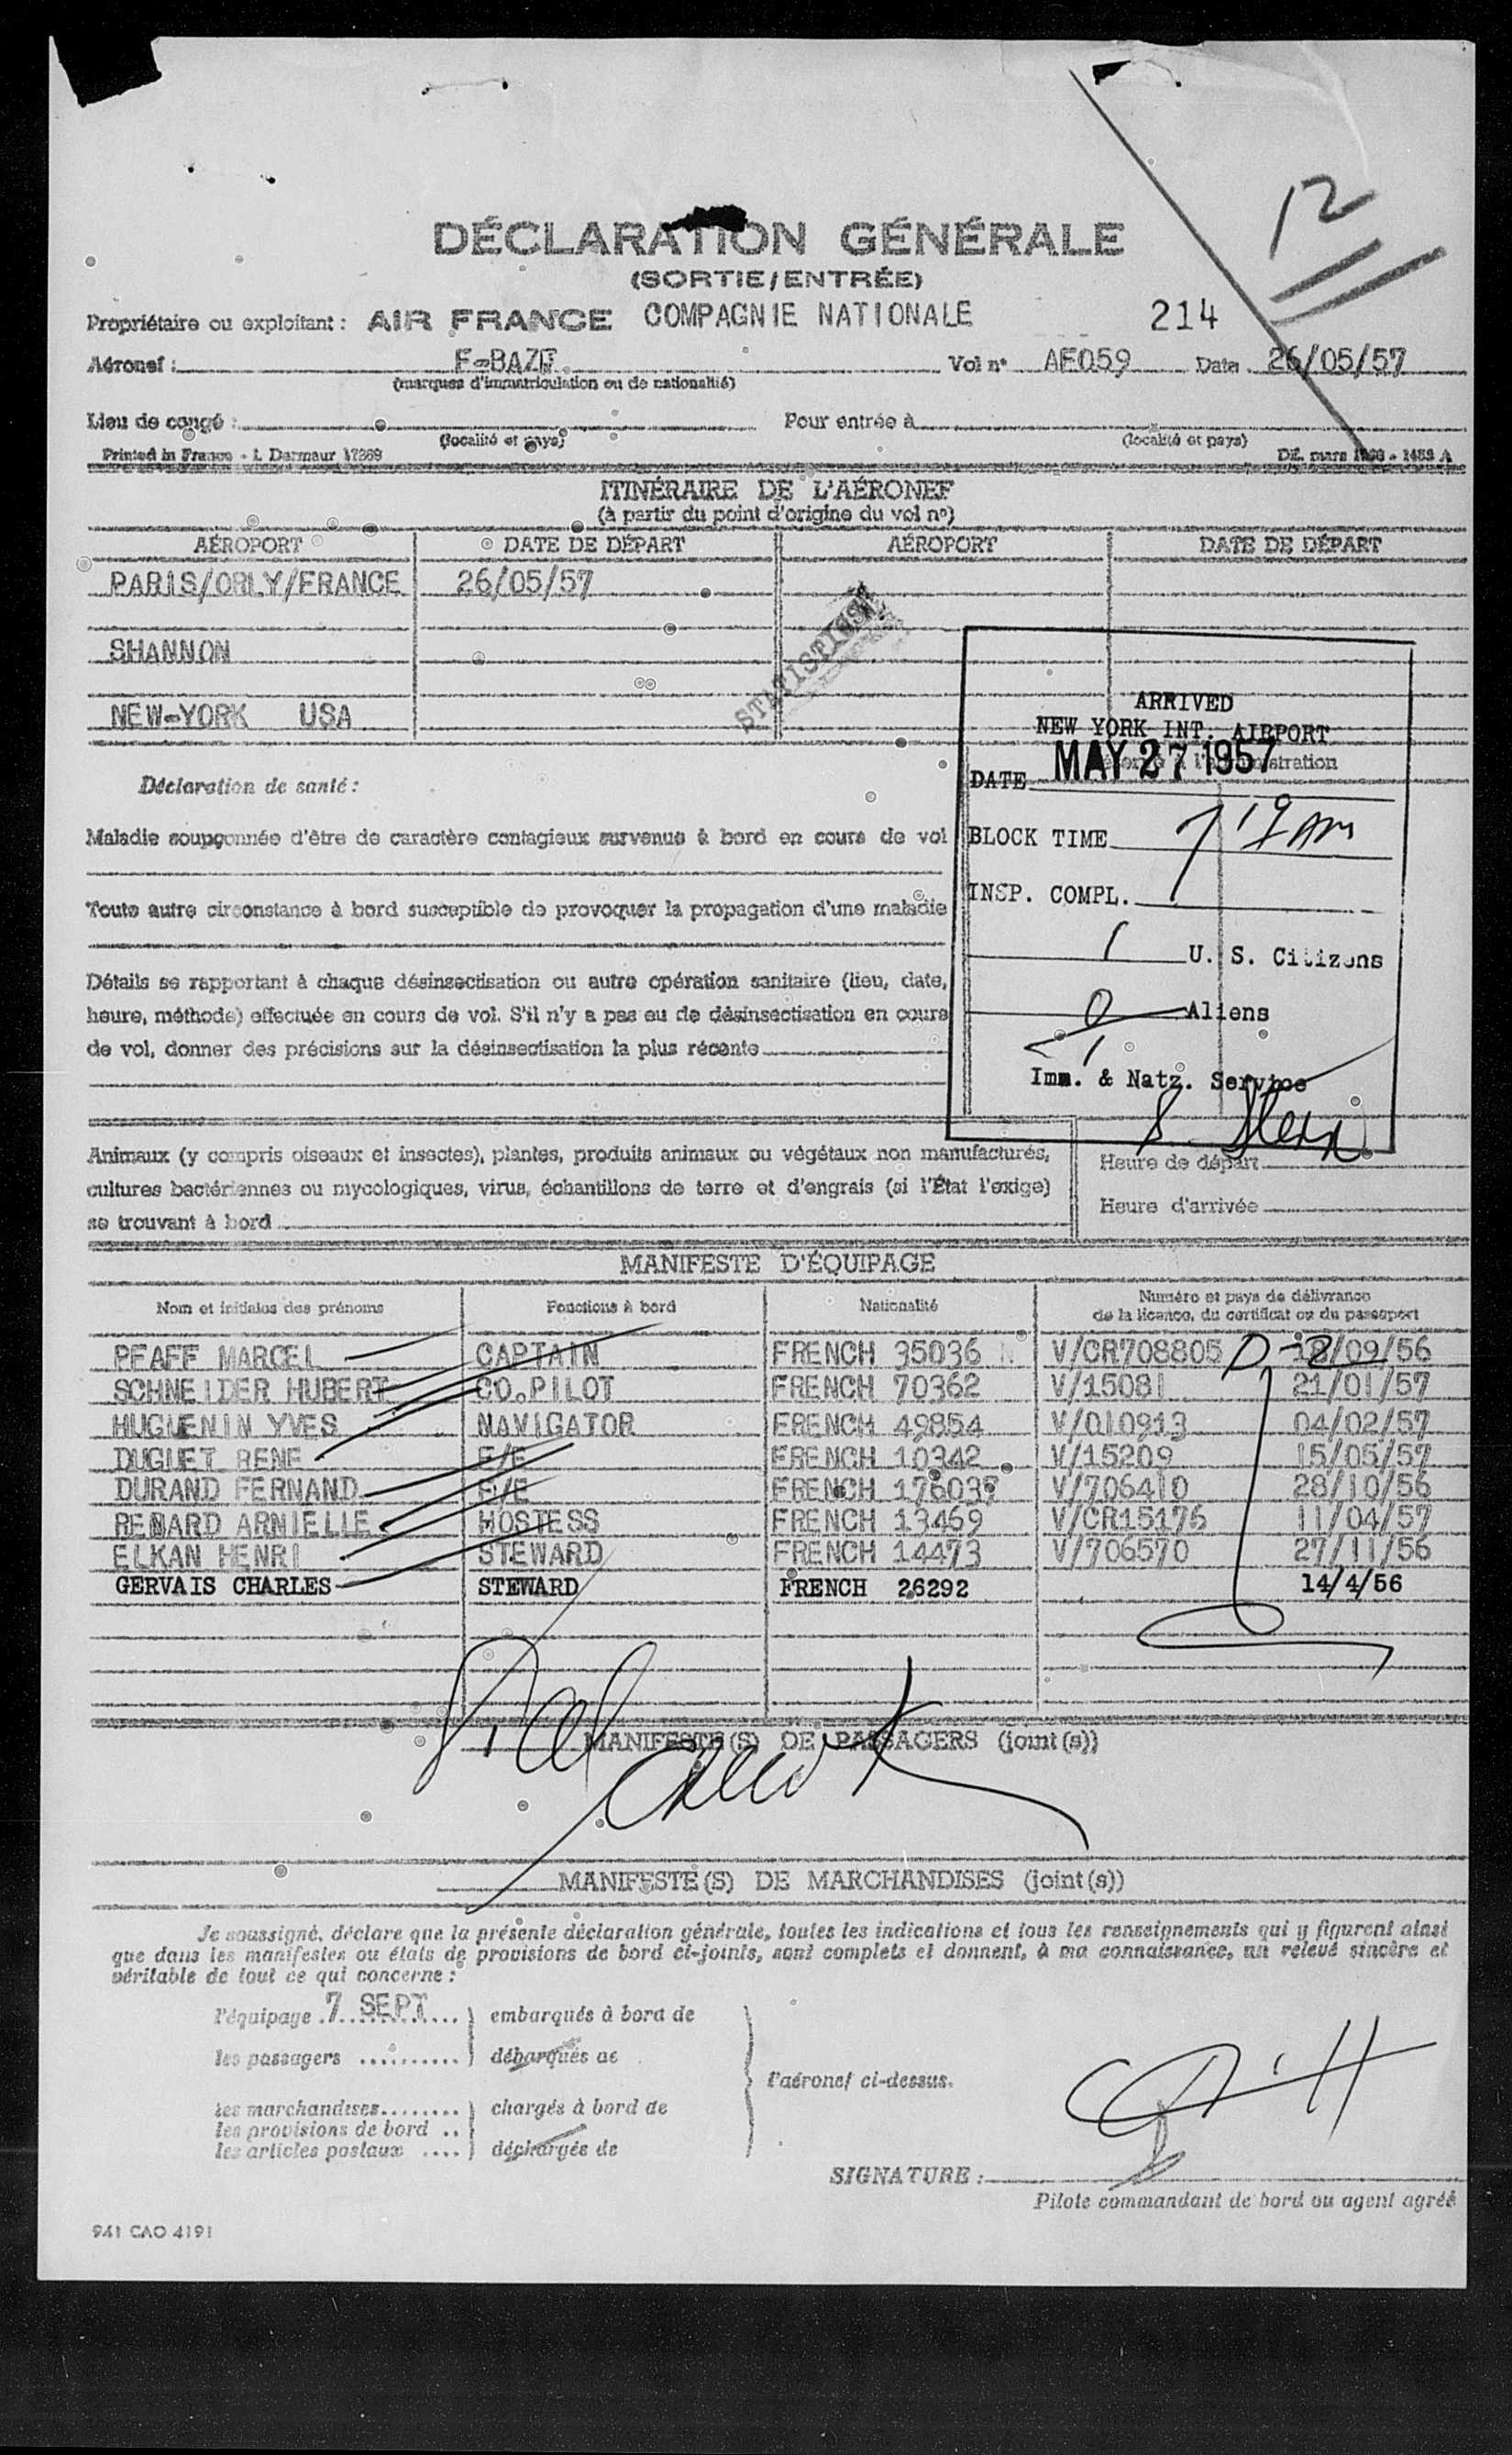 12
DÉCLARATION GÉNÉRALE
(SORTIE/ENTRÉE)
Propriétaire ou exploitant : AIR FRANCE COMPAGNIE NATIONALE 214
Aéronef : Vol nº AF059 Date 26/05/57
(marques d'immatriculation ou de nationalité)
Lieu de congé : Pour entrée à
(localité et pays) (localité et pays)
Printed in France - I. Darmaur 17369 Dil. mars
ITINÉRAIRE DE L'AÉRONEF
(à partir du point d'origine du vol nº)
AÉROPORT DATE DE DÉPART AÉROPORT DATE DE DÉPART
PARIS/ORLY/FRANCE 26/05/57
SHANNON
NEW-YORK USA
ARRIVED
NEW YORK INT. AIRPORT
Réservé à l'administration
DATE MAY 27 1957
BLOCK TIME 719 AM
INSP. COMPL.
1 U. S. Citizens
0 Aliens
Imm. & Natz. Service
Déclaration de santé :
Maladie soupçonnée d'être de caractère contagieux survenue à bord en cours de vol
Toute autre circonstance à bord susceptible de provoquer la propagation d'une maladie
Détails se rapportant à chaque désinsectisation ou autre opération sanitaire (lieu, date,
heure, méthode) effectuée en cours de vol. S'il n'y a pas eu de désinsectisation en cours
de vol, donner des précisions sur la désinsectisation la plus récente
Animaux (y compris oiseaux et insectes), plantes, produits animaux ou végétaux non manufacturés,
cultures bactériennes ou mycologiques, virus, échantillons de terre et d'engrais (si l'État l'exige)
se trouvant à bord
Heure de départ
Heure d'arrivée
MANIFESTE D'ÉQUIPAGE
Nom et initiales des prénoms Fonctions à bord Nationalité Numéro et pays de délivrance
de la licence, du certificat ou du passeport
PFAFF MARCEL CAPTAIN FRENCH 35036 V/CR708805 D-2 18/09/56
SCHNEIDER HUBERT CO.PILOT FRENCH 70362 V/15081 21/01/57
HUGUENIN YVES NAVIGATOR FRENCH 49854 V/010913 04/02/57
DUGUET RENE F/E FRENCH 10342 V/15209 15/05/57
DURAND FERNAND F/E FRENCH 176037 V/706410 28/10/56
RENARD ARNIELLE HOSTESS FRENCH 13469 V/CR15176 11/04/57
ELKAN HENRI STEWARD FRENCH 14473 V/706570 27/11/56
GERVAIS CHARLES STEWARD FRENCH 26292 14/4/56
MANIFESTE(S) DE PASSAGERS (joint(s))
MANIFESTE(S) DE MARCHANDISES (joint(s))
Je soussigné, déclare que la présente déclaration générale, toutes les indications et tous les renseignements qui y figurent ainsi
que dans les manifestes ou états de provisions de bord ci-joints, sont complets et donnent, à ma connaissance, un relevé sincère et
véritable de tout ce qui concerne :
l'équipage 7 SEPT embarqués à bord de
les passagers débarqués de
l'aéronef ci-dessus.
les marchandises chargés à bord de
les provisions de bord
les articles postaux déchargés de
SIGNATURE :
Pilote commandant de bord ou agent agréé
941 CAO 4191